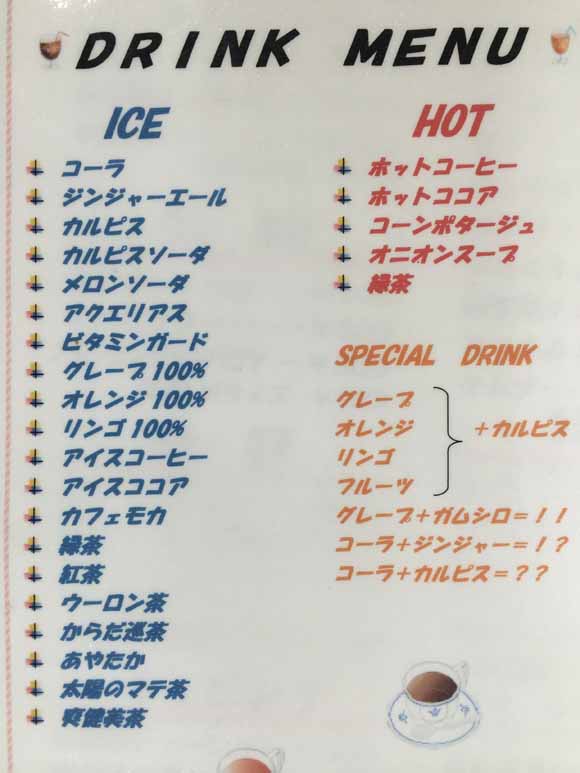 DRINK MENU
ICE
コーラ
ジンジャーエール
カルピス
カルピスソーダ
メロンソーダ
アクエリアス
ビタミンガード
グレープ100%
オレンジ100%
リンゴ100%
アイスコーヒー
アイスココア
カフェモカ
緑茶
紅茶
ウーロン茶
からだ巡茶
あやたか
太陽のマテ茶
爽健美茶
HOT
ホットコーヒー
ホットココア
コーンポタージュ
オニオンスープ
緑茶
SPECIAL DRINK
グレープ
オレンジ
リンゴ
フルーツ
+カルピス
グレープ+ガムシロ=!!
コーラ+ジンジャー=!?
コーラ+カルピス=??